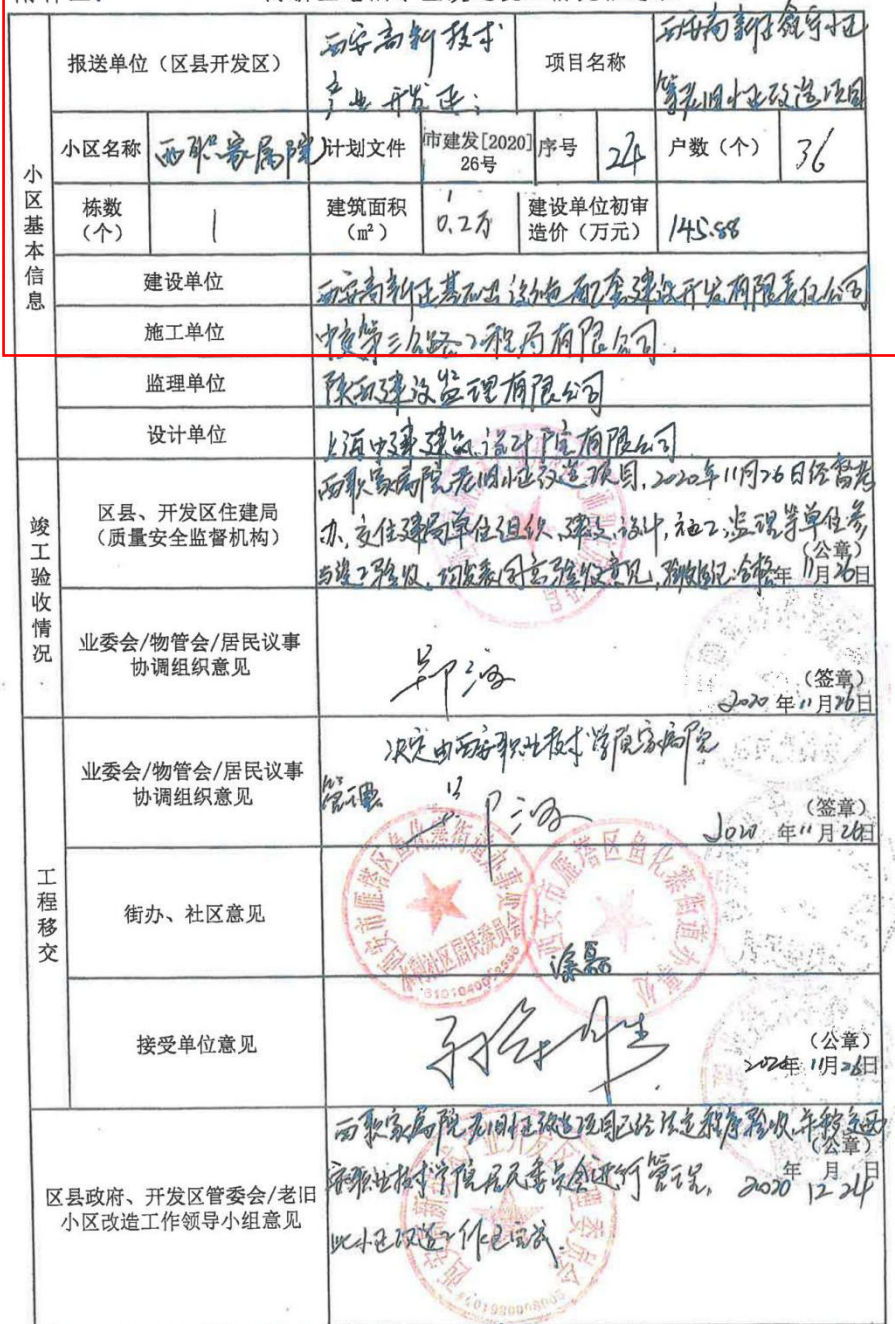 报送单位（区县开发区） 西安高新技术 项目名称 西安高新区鑫宇小区
产业开发区 等老旧小区改造项目
小区基本信息
小区名称 西职家属院 计划文件 市建发[2020] 26号 序号 24 户数（个） 36
栋数（个） 1 建筑面积（m²） 0.2万 建设单位初审造价（万元） 145.88
建设单位 西安高新区基础设施配套建设开发有限责任公司
施工单位 中交第三公路工程局有限公司
监理单位 陕西建设监理有限公司
设计单位 上海中建建筑设计院有限公司
竣工验收情况
区县、开发区住建局
（质量安全监督机构）
西职家属院老旧小区改造项目，2020年11月26日经
办、交住建局单位组织、建设、设计，施工、监理等单位参
（公章）
与竣工验收，均发表同意验收意见，合格 年11月26日
业委会/物管会/居民议事
协调组织意见
（签章）
2020年11月26日
工程移交
业委会/物管会/居民议事
协调组织意见
决定由西安职业技术学院家属院
管理
（签章）
2020 年11月26日
街办、社区意见
西安市雁塔区鱼化寨街道办事处
社区居民委员会
西安市雁塔区鱼化寨街道办事处
涂磊
接受单位意见
（公章）
2020年11月26日
区县政府、开发区管委会/老旧
小区改造工作领导小组意见
西职家属院老旧小区改造项目已经法定程序验收，并移交西
（公章）
安职业技术学院居民委员会进行管理，
年 月 日
2020 12 24
此小区改造工作已完成.